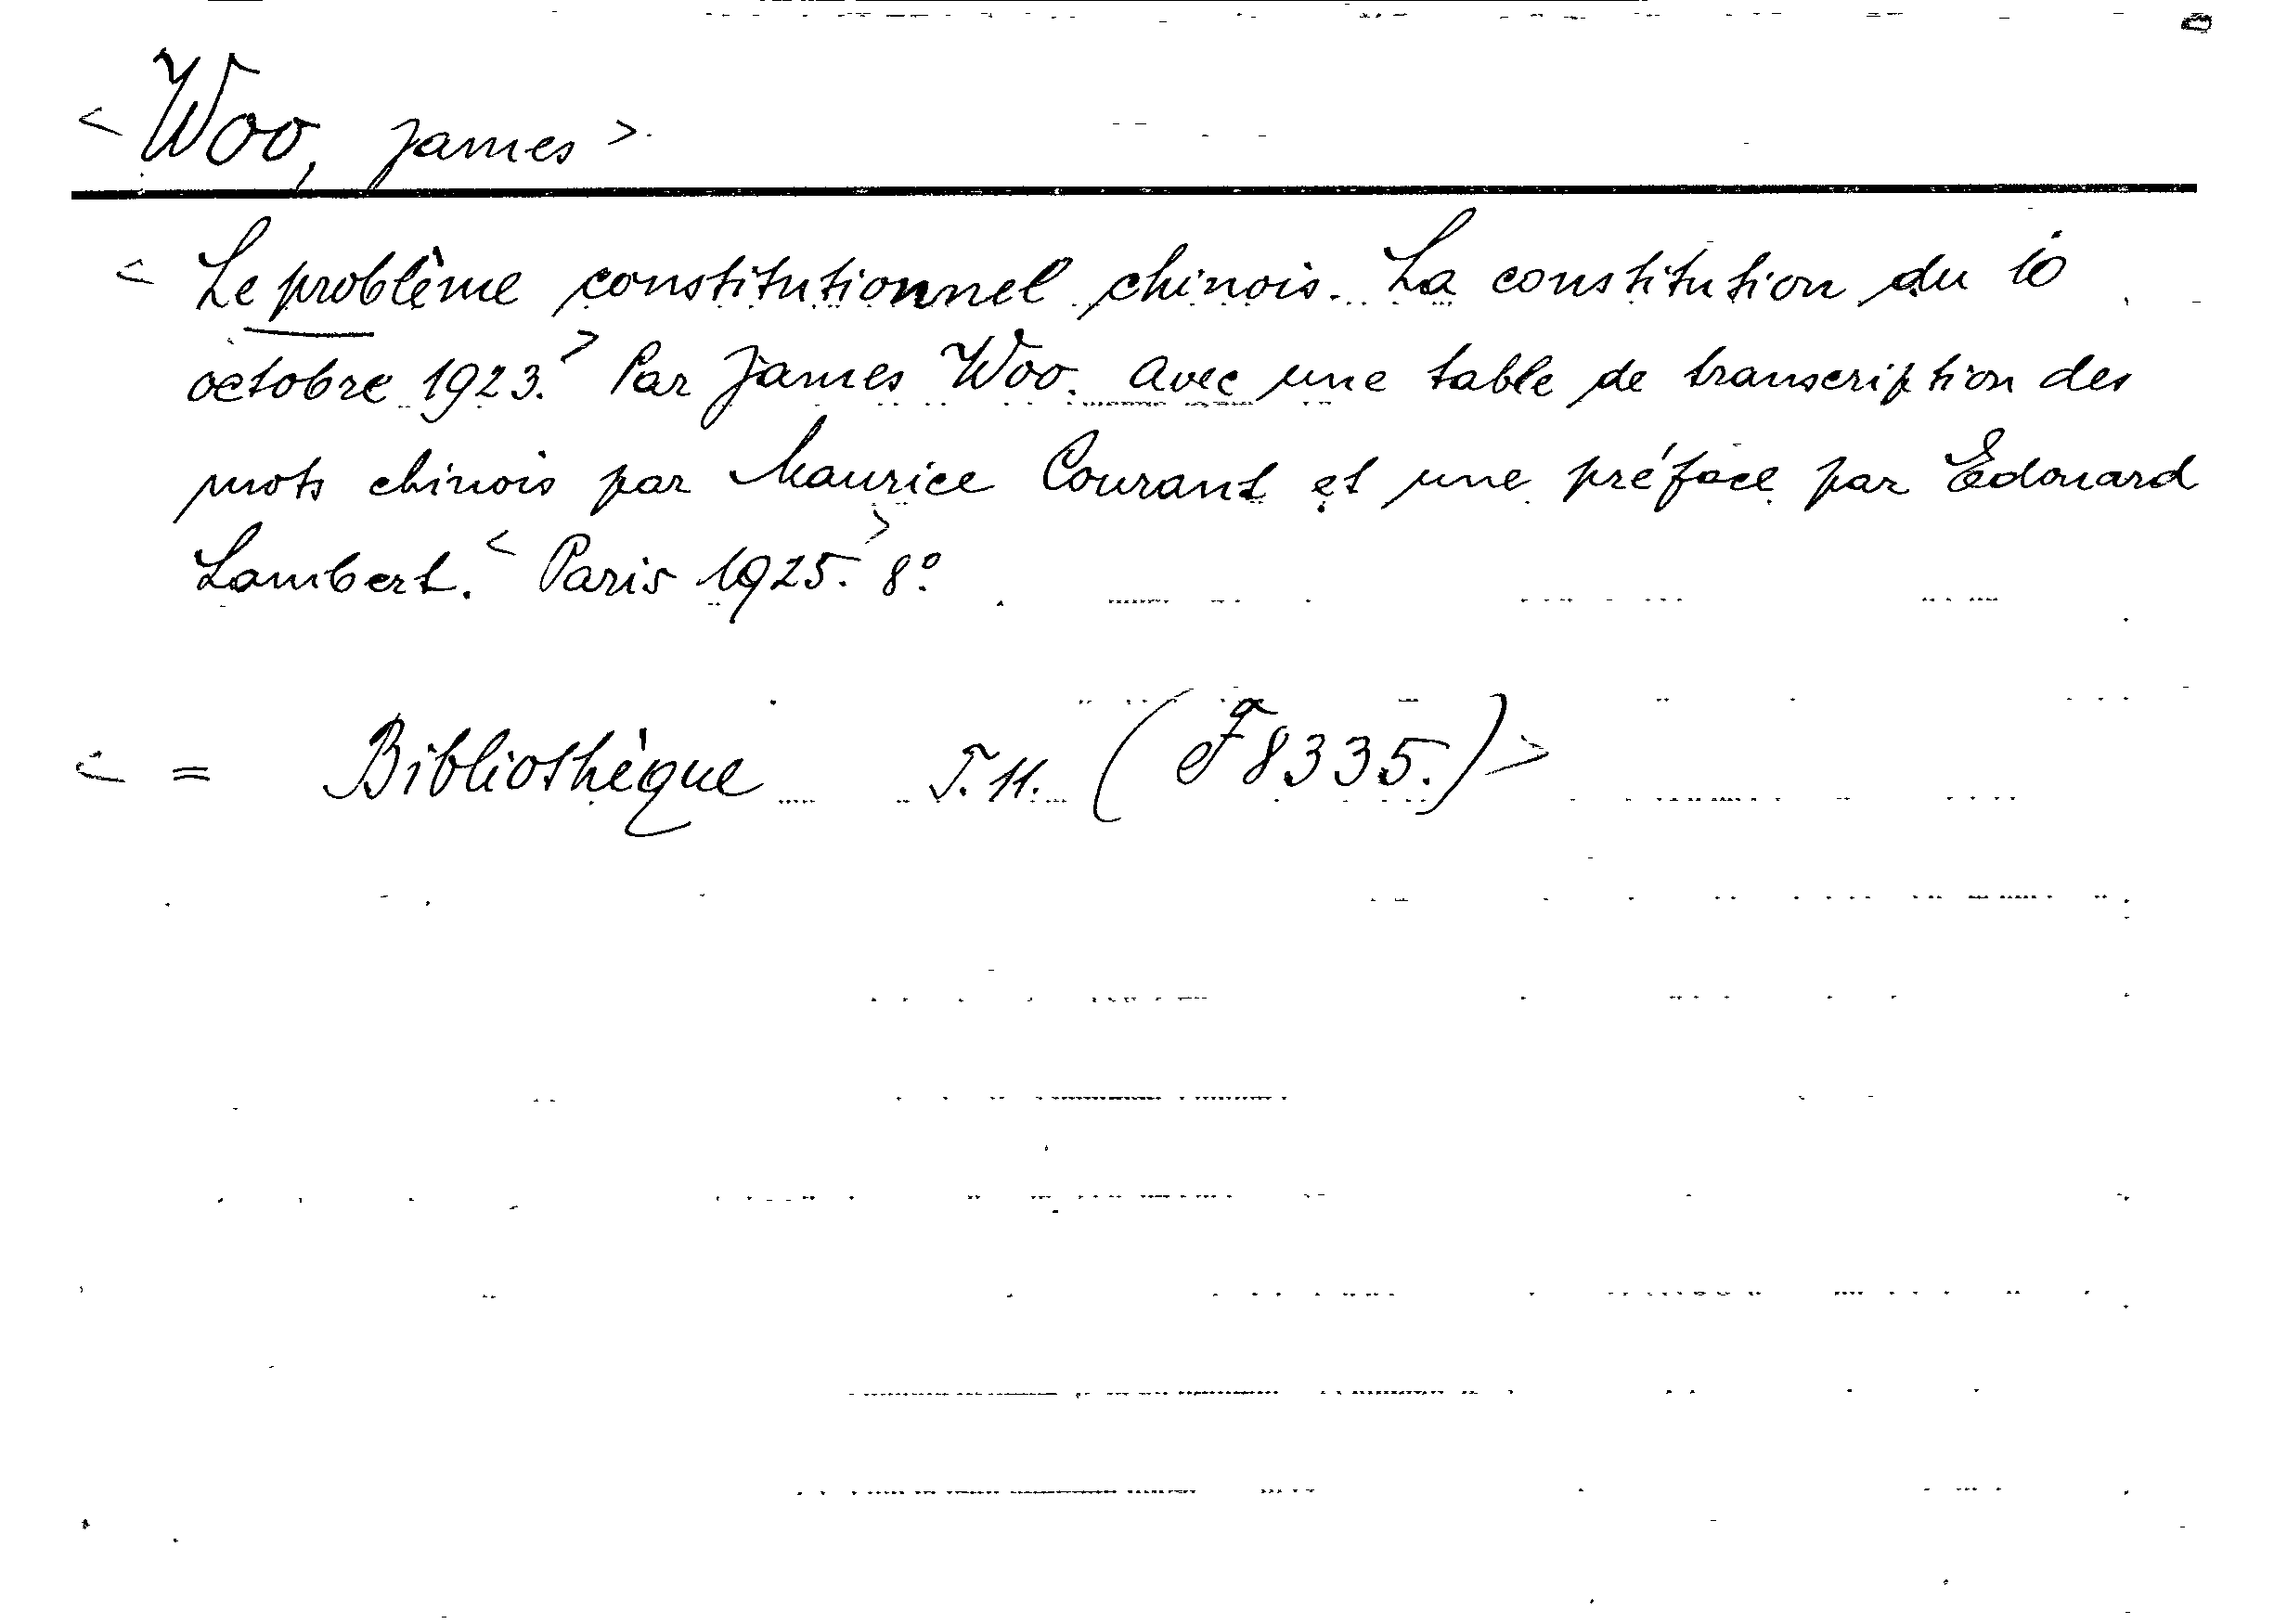 < Woo, James >
< Le problème constitutionnel chinois. La constitution du 10
octobre 1923. > Par James Woo. Avec une table de transcription des
mots chinois par Maurice Courant et une préface par Edouard
Lambert. < Paris 1925. > 8°.
< = Bibliothèque T. 11. (F 8335.) >